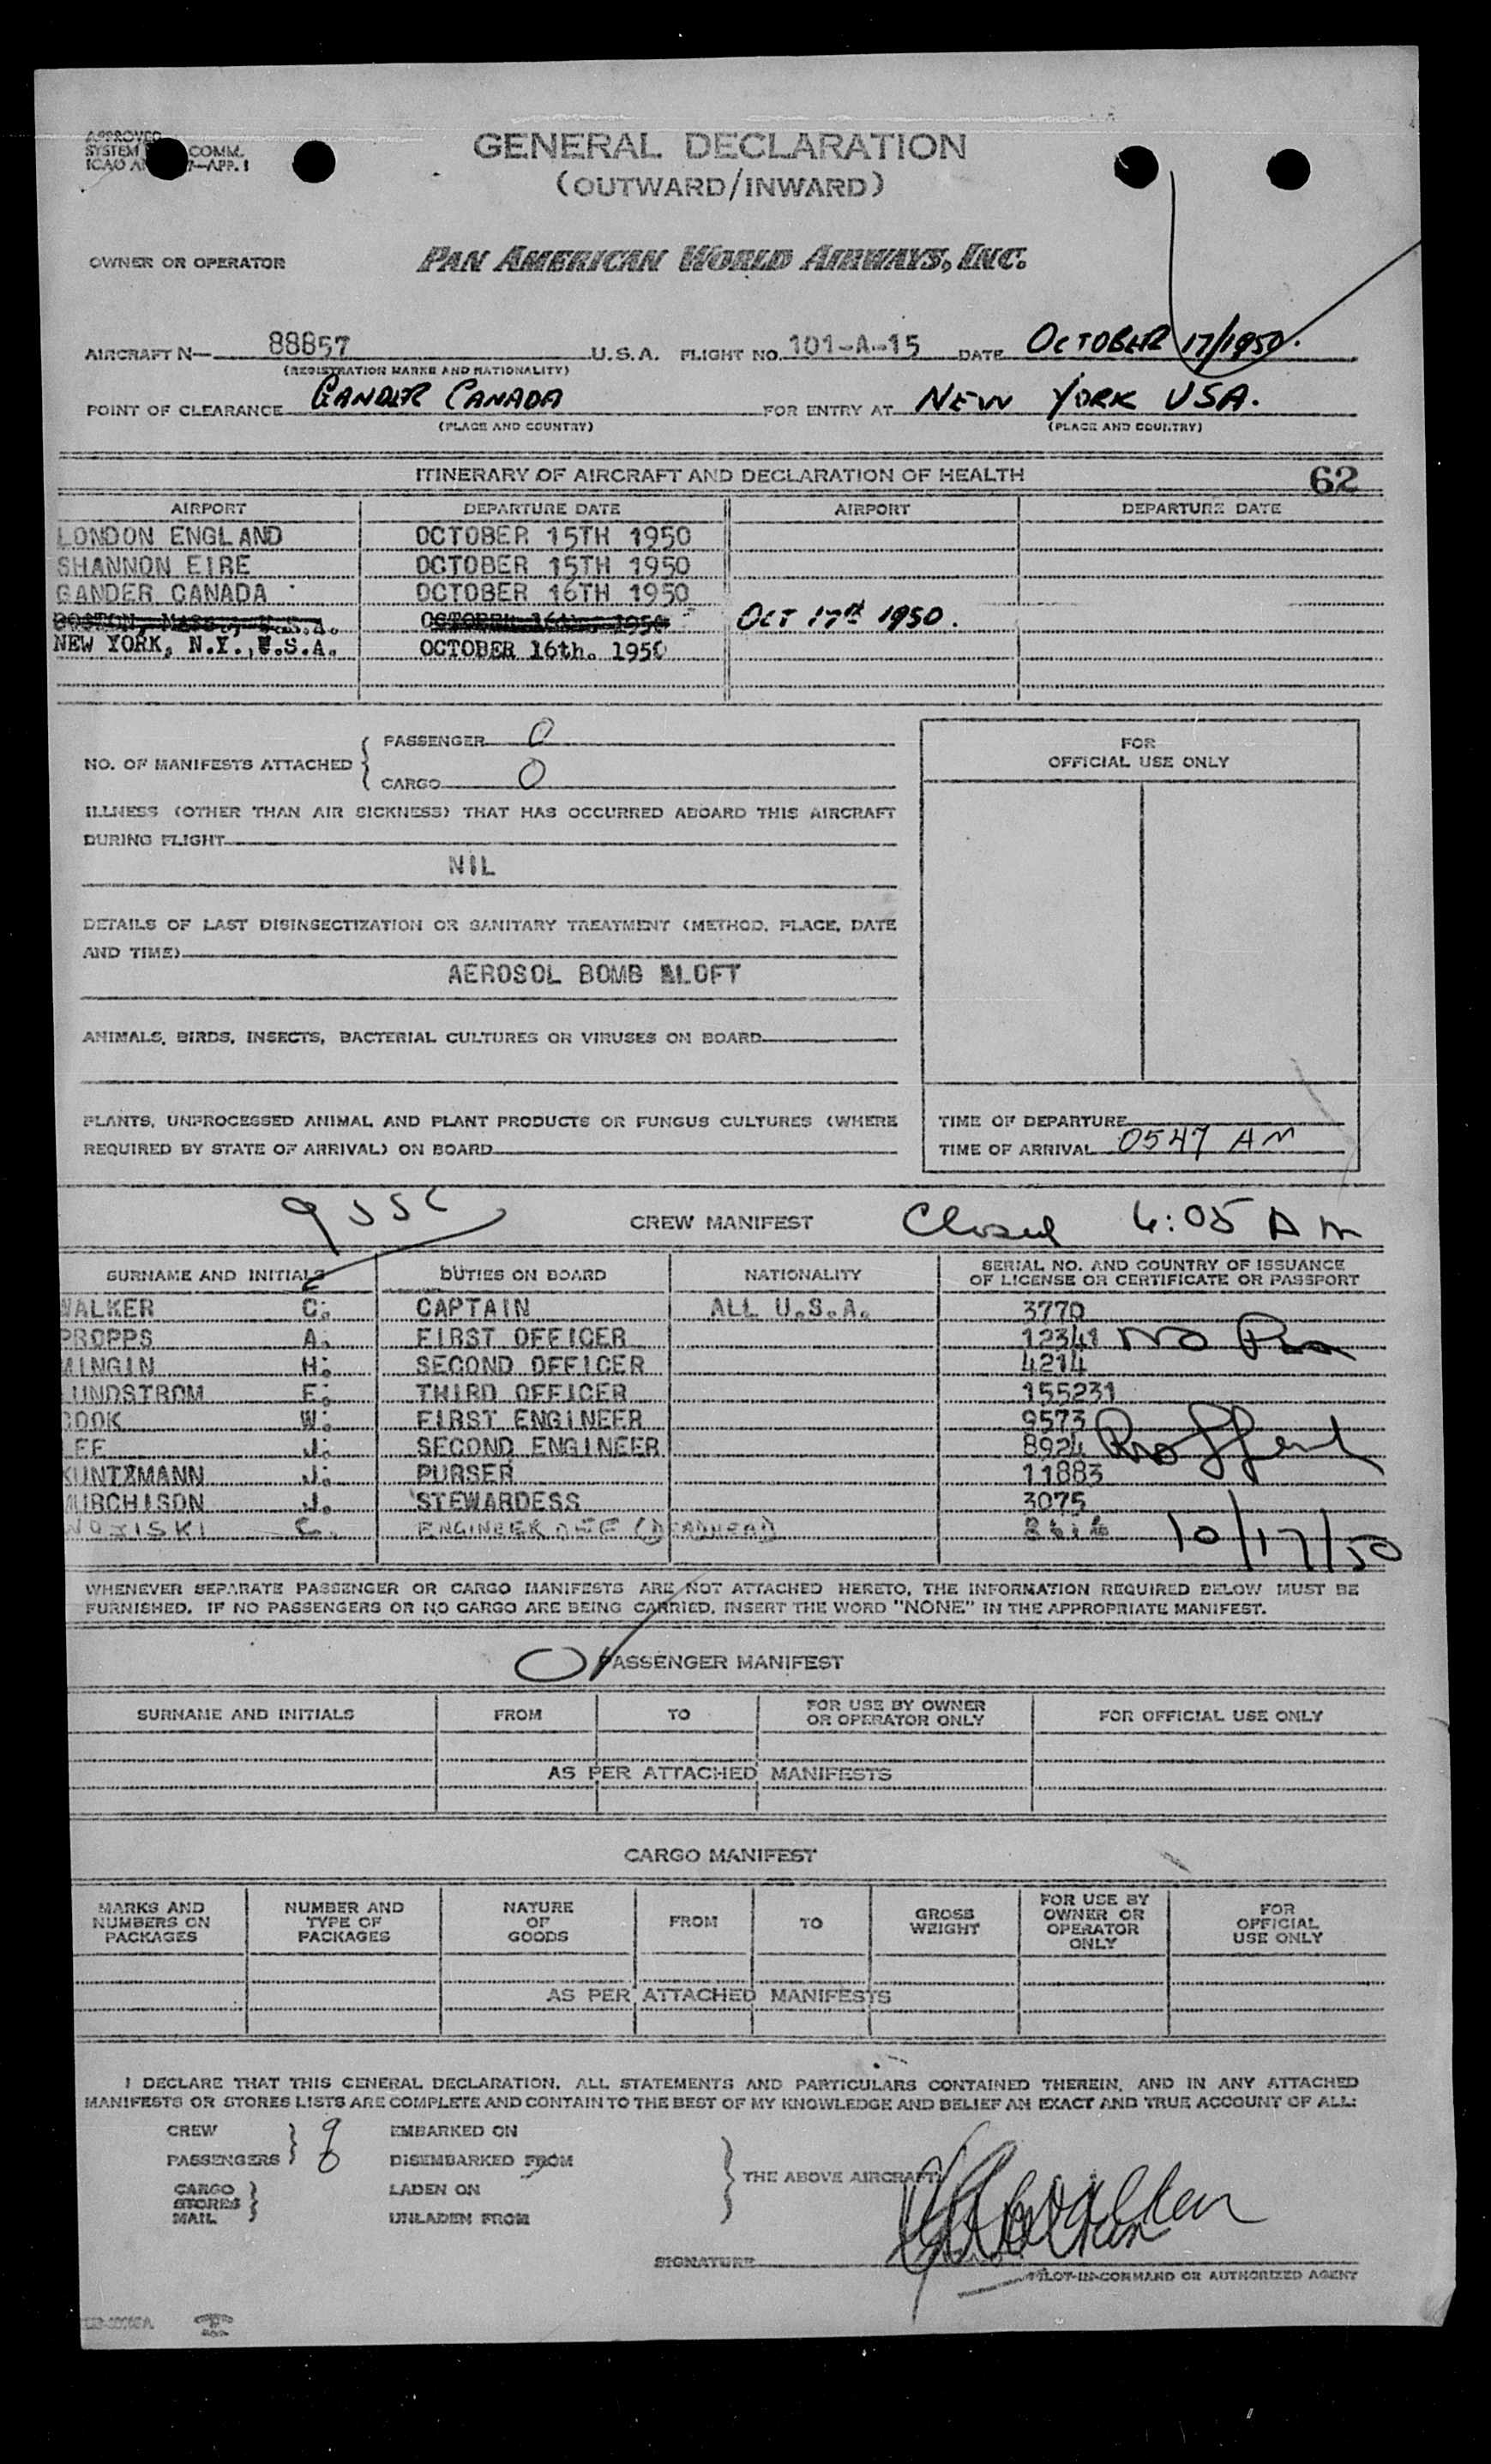 APPROVED
SYSTEM COMM.
ICAO AN 7—APP. 1
GENERAL DECLARATION
(OUTWARD/INWARD)
OWNER OR OPERATOR PAN AMERICAN WORLD AIRWAYS, INC.
AIRCRAFT N— 88857 U.S.A. FLIGHT NO. 101-A-15 DATE OCTOBER 17/1950.
(REGISTRATION MARKS AND NATIONALITY)
POINT OF CLEARANCE GANDER CANADA FOR ENTRY AT NEW YORK USA.
(PLACE AND COUNTRY) (PLACE AND COUNTRY)
ITINERARY OF AIRCRAFT AND DECLARATION OF HEALTH 62
AIRPORT DEPARTURE DATE AIRPORT DEPARTURE DATE
LONDON ENGLAND OCTOBER 15TH 1950
SHANNON EIRE OCTOBER 15TH 1950
GANDER CANADA OCTOBER 16TH 1950
BOSTON, MASS., U.S.A. OCTOBER 16th. 1950 OCT 17th 1950.
NEW YORK, N.Y., U.S.A. OCTOBER 16th. 1950
NO. OF MANIFESTS ATTACHED { PASSENGER 0
CARGO 0
FOR
OFFICIAL USE ONLY
ILLNESS (OTHER THAN AIR SICKNESS) THAT HAS OCCURRED ABOARD THIS AIRCRAFT
DURING FLIGHT
NIL
DETAILS OF LAST DISINSECTIZATION OR SANITARY TREATMENT (METHOD, PLACE, DATE
AND TIME)
AEROSOL BOMB ALOFT
ANIMALS, BIRDS, INSECTS, BACTERIAL CULTURES OR VIRUSES ON BOARD
PLANTS, UNPROCESSED ANIMAL AND PLANT PRODUCTS OR FUNGUS CULTURES (WHERE
REQUIRED BY STATE OF ARRIVAL) ON BOARD
TIME OF DEPARTURE
TIME OF ARRIVAL 0547 AM
9 CREW MANIFEST Closed 6:05 AM
SURNAME AND INITIALS DUTIES ON BOARD NATIONALITY SERIAL NO. AND COUNTRY OF ISSUANCE
OF LICENSE OR CERTIFICATE OR PASSPORT
WALKER C. CAPTAIN ALL U.S.A. 3770
PROPPS A. FIRST OFFICER 12341 NO
MINGIN H. SECOND OFFICER 4214
LUNDSTROM E. THIRD OFFICER 155231
COOK W. FIRST ENGINEER 9573
LEE J. SECOND ENGINEER 8924
KUNTZMANN J. PURSER 11883
MURCHISON J. STEWARDESS 3075
C. ENGINEER (DEADHEAD) 10/17/50
WHENEVER SEPARATE PASSENGER OR CARGO MANIFESTS ARE NOT ATTACHED HERETO, THE INFORMATION REQUIRED BELOW MUST BE
FURNISHED. IF NO PASSENGERS OR NO CARGO ARE BEING CARRIED, INSERT THE WORD "NONE" IN THE APPROPRIATE MANIFEST.
0 PASSENGER MANIFEST
SURNAME AND INITIALS FROM TO FOR USE BY OWNER
OR OPERATOR ONLY FOR OFFICIAL USE ONLY
AS PER ATTACHED MANIFESTS
CARGO MANIFEST
MARKS AND
NUMBERS ON
PACKAGES
NUMBER AND
TYPE OF
PACKAGES
NATURE
OF
GOODS
FROM TO
GROSS
WEIGHT
FOR USE BY
OWNER OR
OPERATOR
ONLY
FOR
OFFICIAL
USE ONLY
AS PER ATTACHED MANIFESTS
I DECLARE THAT THIS GENERAL DECLARATION, ALL STATEMENTS AND PARTICULARS CONTAINED THEREIN, AND IN ANY ATTACHED
MANIFESTS OR STORES LISTS ARE COMPLETE AND CONTAIN TO THE BEST OF MY KNOWLEDGE AND BELIEF AN EXACT AND TRUE ACCOUNT OF ALL:
CREW 9 EMBARKED ON
PASSENGERS 0 DISEMBARKED FROM
THE ABOVE AIRCRAFT.
CARGO LADEN ON
STORES
MAIL UNLADEN FROM
SIGNATURE Walker
PILOT-IN-COMMAND OR AUTHORIZED AGENT